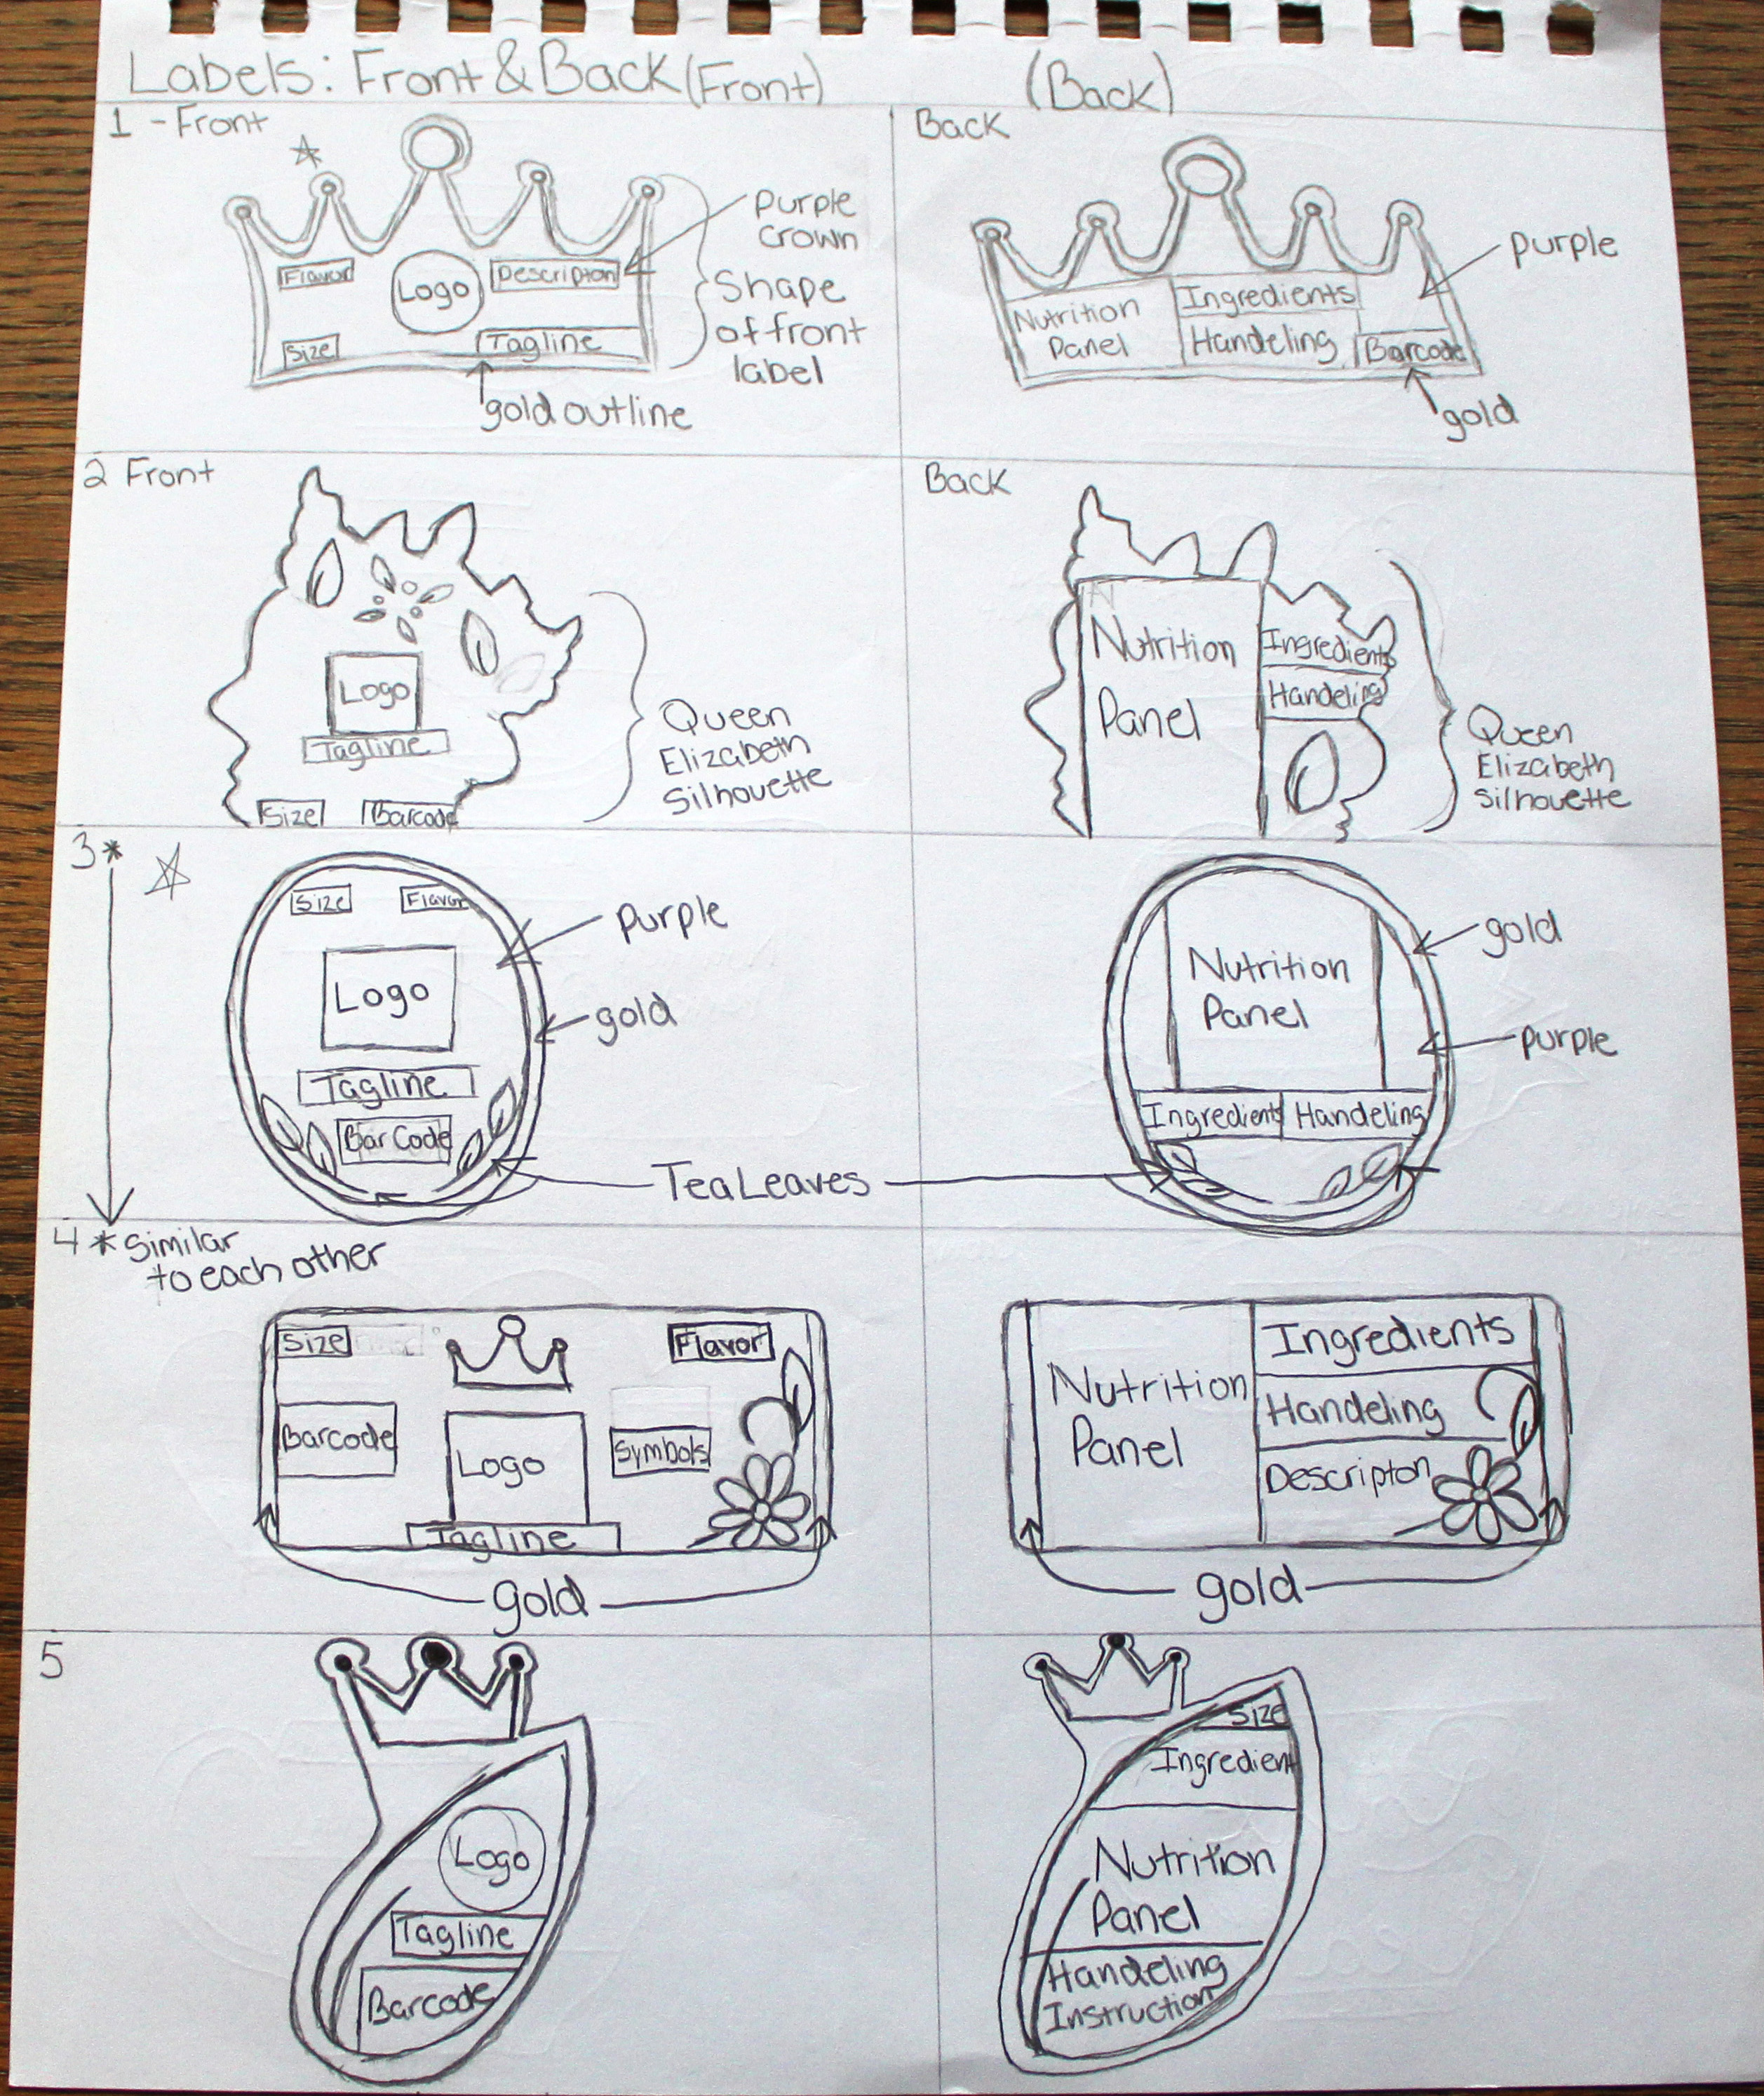 Labels: Front & Back (Front) (Back)
1 - Front
Flavor
Logo
Descripton
Size
Tagline
purple
crown
Shape
of front
label
gold outline
Back
Nutrition
Panel
Ingredients
Handeling
Barcode
purple
gold
2 Front
Logo
Tagline
Size
Barcode
Queen
Elizabeth
Silhouette
Back
Nutrition
Panel
Ingredients
Handeling
Queen
Elizabeth
Silhouette
3*
Size
Flavor
Logo
Tagline
BarCode
purple
gold
Tea Leaves
Nutrition
Panel
Ingredients
Handeling
gold
purple
4 * Similar
to each other
Size
Flavor
Barcode
Logo
Symbols
Tagline
gold
Nutrition
Panel
Ingredients
Handeling
Descripton
gold
5
Logo
Tagline
Barcode
Size
Ingredient
Nutrition
Panel
Handeling
Instruction